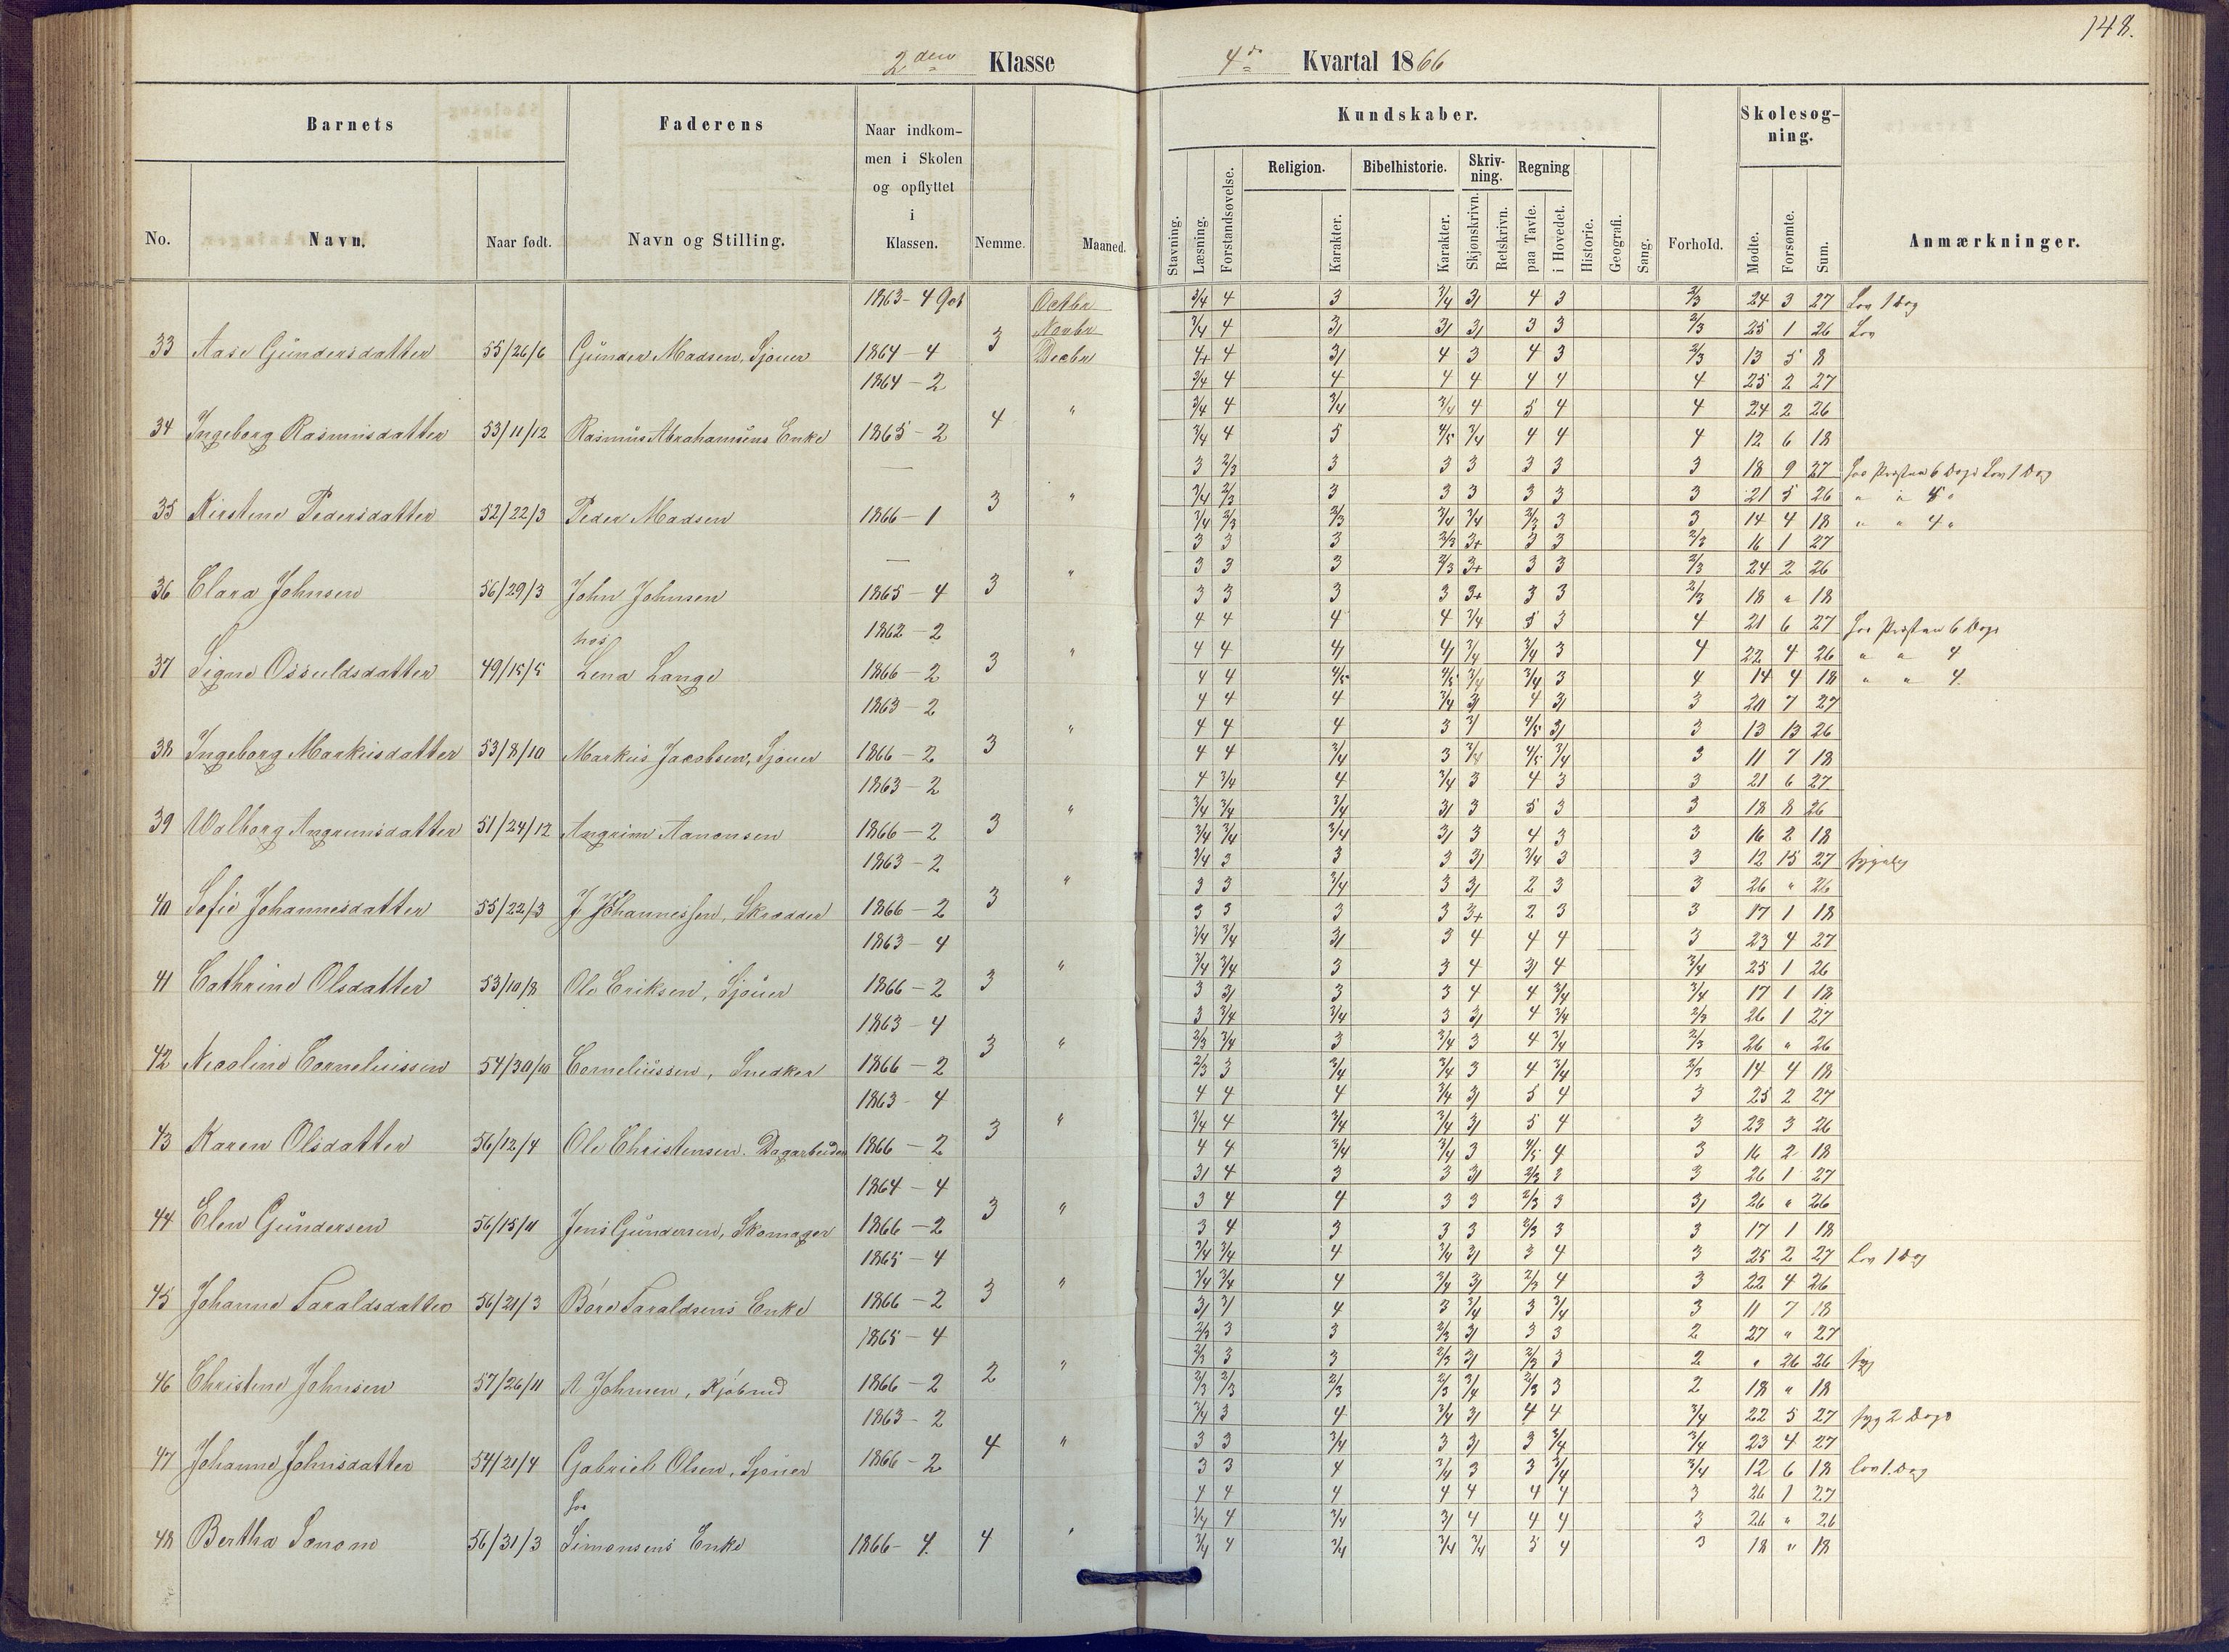 148.
2den Klasse
4de Kvartal 1866
Barnets
Faderens
Naar indkommen i Skolen og opflyttet i Klassen.
Nemme.
Maaned.
No.
Navn.
Naar født.
Navn og Stilling.
Kundskaber.
Stavning.
Læsning.
Forstandsøvelse.
Religion.
Karakter.
Bibelhistorie.
Karakter.
Skrivning.
Skjønskrivn.
Retskrivn.
Regning
paa Tavle.
i Hovedet.
Historie.
Geografi.
Sang.
Forhold.
Skolesøgning.
Mødte.
Forsømte.
Sum.
Anmærkninger.
1863 - 4 Octbr
Novbr
33 Aase Gundersdatter 55/26/6 Gunder Madsen, Sjouer 1864 - 4 3 Decbr
1864 - 2
34 Ingeborg Rasmusdatter 53/11/12 Rasmus Abrahamsens Enke 1865 - 2 4 "
35 Kirstine Pedersdatter 52/22/3 Peder Madsen 1866 - 1 3 "
36 Clara Johnsen 56/29/3 John Johnsen 1865 - 4 3 "
hos 1862 - 2
37 Signe Osuldsdatter 49/15/5 Lena Lange 1866 - 2 3 "
1863 - 2
38 Ingeborg Markusdatter 53/8/10 Markus Jacobsen, Sjouer 1866 - 2 3 "
1863 - 2
39 Valborg Angrimsdatter 51/24/12 Angrim Aanonsen 1866 - 2 3 "
1863 - 2
40 Sofie Johannesdatter 55/22/3 J Johannessen, Skrædder 1866 - 2 3 "
1863 - 4
41 Cathrine Olsdatter 53/10/8 Ole Eriksen, Sjouer 1866 - 2 3 "
1863 - 4
42 Nicoline Corneliussen 54/30/10 Corneliussen, Snedker 1866 - 2 3 "
1863 - 4
43 Karen Olsdatter 56/12/4 Ole Christensen. Dagarbeider 1866 - 2 3 "
1864 - 4
44 Elen Gundersen 56/15/11 Jens Gundersen, Skomager 1866 - 2 3 "
1865 - 4
45 Johanne Taraldsdatter 56/21/3 Børe Taraldsens Enke 1866 - 2 3 "
1865 - 4
46 Christine Johnsen 57/26/11 A Johnsen, 1866 - 2 2 "
1863 - 2
47 Johanne Johnsdatter 54/21/4 Gabriel Olsen, Sjouer 1866 - 2 4 "
for
48 Bertha 56/31/3 Simonsens Enke 1866 - 4. 4 "
3/4 4 3 3/4 3/ 4 3 2/3 24 3 27 Lov 1 Dag
3/4 4 3/ 3/ 3/ 3 3 2/3 25 1 26 Lov
4+ 4 3/ 4 3 4 3 2/3 13 5 8
3/4 4 4 4 4 4 4 4 25 2 27
3/4 4 3/4 3/4 4 5 4 4 24 2 26
3/4 4 5 4/5 3/4 4 4 4 12 6 18
3 2/3 3 3 3 3 3 3 18 9 27 for Præsten 6 Dage Lov 1 Dag
3/4 2/3 3 3 3 3 3 3 21 5 26
3/4 2/3 2/3 3/4 3/4 2/3 3 3 14 4 18 " " 4 "
3 3 3 2/3 3+ 3 3 2/3 16 1 27
3 3 3 2/3 3+ 3 3 2/3 24 2 26
3 3 3 3 3+ 3 3 2/3 18 " 18
4 4 4 4 3/4 5 3 4 21 6 27 for Præsten 6 Dage
4 4 4/ 4/ 3/4 3/4 3 4 22 4 26 " " 4
4 4 4/5 4/5 3/4 3/4 3 4 14 4 18 " " 4
4 4 4 3/4 3/ 4 3/ 3 20 7 27
4 4 4 3 3/ 4/5 3/ 3 13 13 26
4 4 3/4 3 3/4 4/5 3/4 3 11 7 18
4 3/4 4 3/4 3 4 3 3 21 6 27
3/4 3/4 3/4 3/ 3 5 3 3 18 8 26
3/4 3/4 3/4 3/ 3 4 3 3 16 2 18
3/4 3 3 3 3/ 3/4 3 3 12 15 27
3 3 3/4 3 3/ 2 3 3 26 " 26
3 3 3 3 3+ 2 3 3 17 1 18
3/4 3/4 3/ 3 4 4 4 3 23 4 27
3/4 3/4 3 3 4 3/ 4 3/4 25 1 26
3 3/ 3 3 4 4 3/4 3/4 17 1 18
3 3/4 3/4 3 3/ 4 3/4 2/3 26 1 27
2/3 3/4 3 3/4 3 4 3/4 2/3 26 " 26
2/3 3 3/4 3/4 3 4 3/4 2/3 14 4 18
4 4 4 3/4 3/ 5 4 3 25 2 27
3/4 4 3/4 3/4 3/ 5 4 3 23 3 26
4 4 3/4 3/4 3 4/5 4 3 16 2 18
3/ 4 3 3 3/ 2/3 3 3 26 1 27
3 4 4 3 3 2/3 3 3/ 26 " 26
3 4 3 3 3 2/3 3 3 17 1 18
3/4 3/4 4 3/4 3/ 3 4 3 25 2 27 Lov 1 Dag
3/4 3/4 4 3/4 3/ 2/3 4 3 22 4 26
3/ 3/ 4 3 3/4 3 3/4 3 11 7 18
2/3 3 3 2/3 3/ 3 3 2 27 " 27
2/3 3 3 2/3 3/ 2/3 3 2 " 26 26 syg
2/3 2/3 2/3 2/3 3/4 2/3 3 2 18 " 18
3/4 3 4 3/4 3/ 4 4 3/4 22 5 27 syg 2 Dage
3 3 3/4 3 3/ 3 3/4 3/4 23 4 27
3 3 4 3/4 3 3 3/4 3/4 12 6 18 lov 1. Dag
4 4 4 4 4 4 4 3 26 1 27
3/4 4 3/4 3/ 4 4 4 3 26 " 26
3/4 4 3/4 3/4 3/4 5 4 3 18 " 18